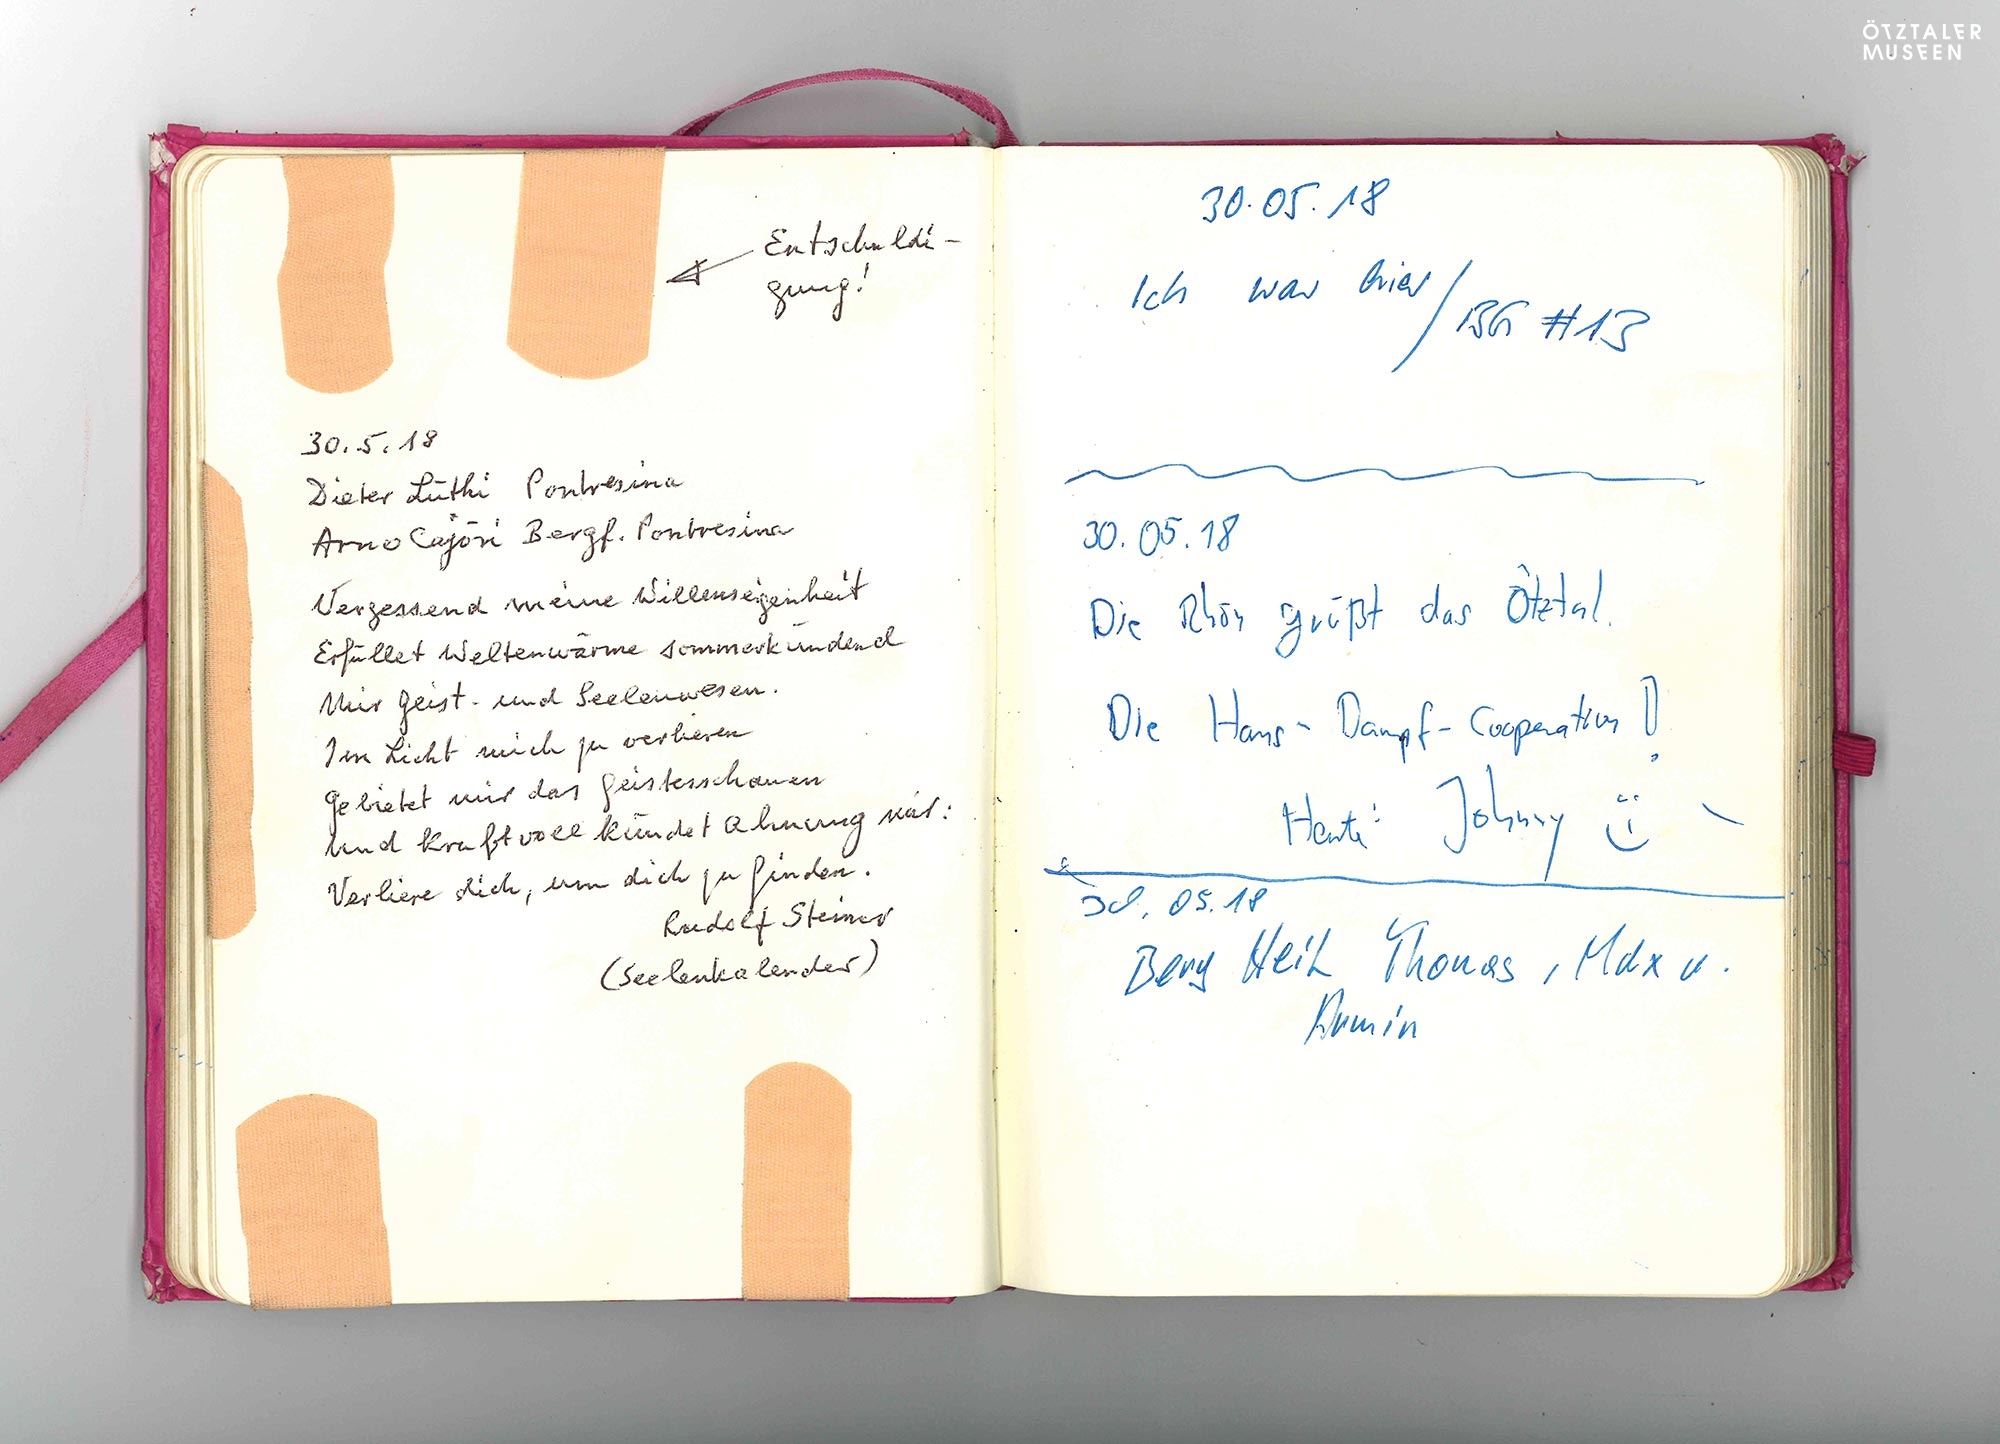 ÖTZTALER
MUSEEN
Entschuldi-
gung!
30.5.18
Dieter Lüthi Pontresina
Arno Cajöri Bergf. Pontresina
Vergessend meine Willenseigenheit
Erfüllet Weltenwärme sommerkündend
Mir Geist- und Seelenwesen.
Im Licht mich zu verlieren
Gebietet mir das Geistesschauen
und Kraftvoll kündet Ahnung mir:
Verliere dich, um dich zu finden.
Rudolf Steiner
(Seelenkalender)
30.05.18
Ich war hier/
BG #13
30.05.18
Die Rhön grüßt das Ötztal.
Die Hans-Dampf-Cooperation!
Heute: Johnny
30.05.18
Berg Heil Thomas, Max u.
Armin